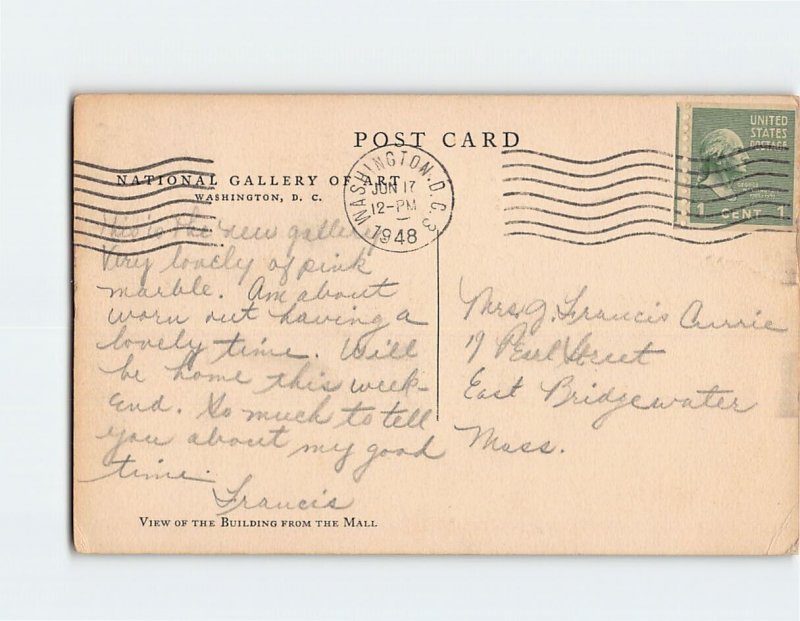 POST CARD
NATIONAL GALLERY OF ART
WASHINGTON, D. C.
WASHINGTON, D.C. 3
JUN 17
12-PM
1948
UNITED
STATES
POSTAGE
1 CENT 1
This is the new gallery
Very lovely of pink
marble. Am about
worn out having a
lovely time. Will
be home this week-
end. So much to tell
you about my good
time.
Francis
Mrs. J. Francis Currie
19 Pearl Street
East Bridgewater
Mass.
VIEW OF THE BUILDING FROM THE MALL